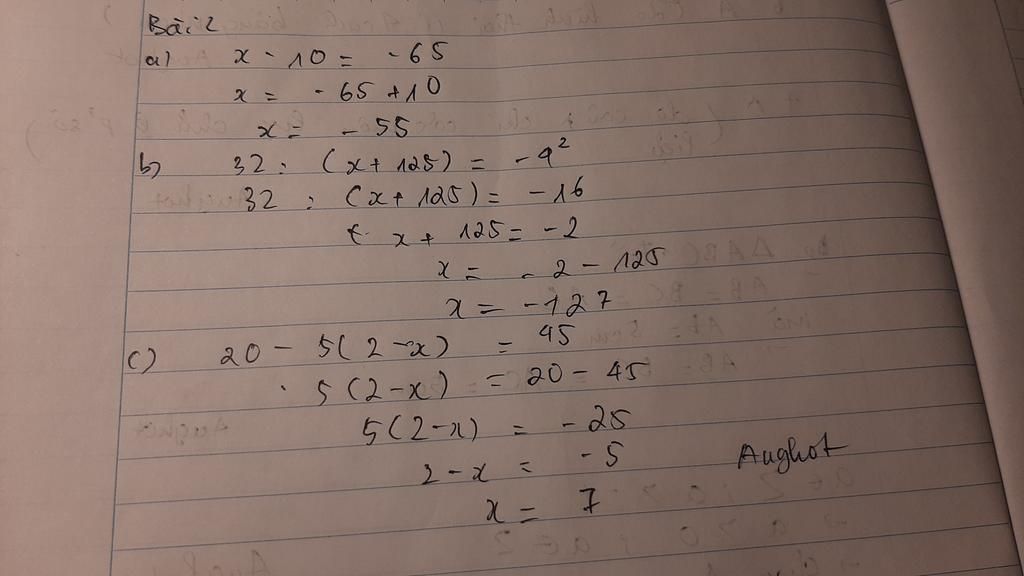 Bài 2
a) x - 10 = -65
x = -65 + 10
x = -55
b) 32 : (x + 125) = -4²
32 : (x + 125) = -16
x + 125 = -2
x = -2 - 125
x = -127
c) 20 - 5(2 - x) = 45
5(2 - x) = 20 - 45
5(2 - x) = -25
2 - x = -5
x = 7
Aughot